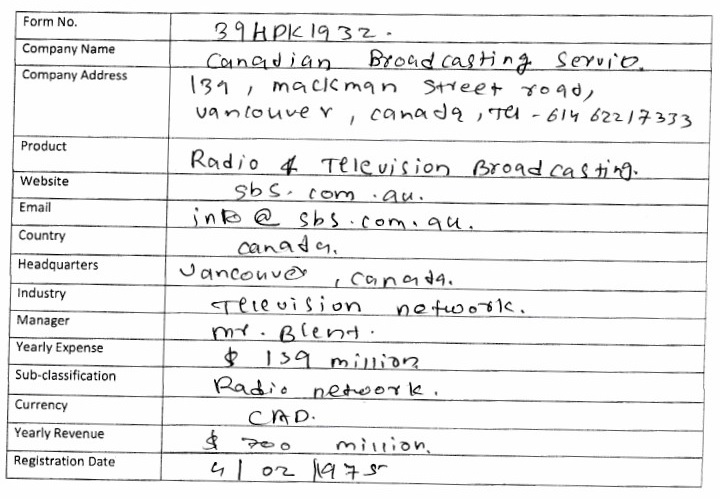 Form No. 39HDK1932.
Company Name Canadian Broadcasting Servic.
Company Address 139, mackman Street road,
vancouver, canada, Tel - 614 62217333
Product Radio & Television Broadcasting.
Website sbs.com.au.
Email info@sbs.com.au.
Country canada.
Headquarters Vancouver, canada.
Industry Television network.
Manager mr. Blent.
Yearly Expense $ 139 million
Sub-classification Radio network.
Currency CAD.
Yearly Revenue $ 700 million.
Registration Date 4/02/1975